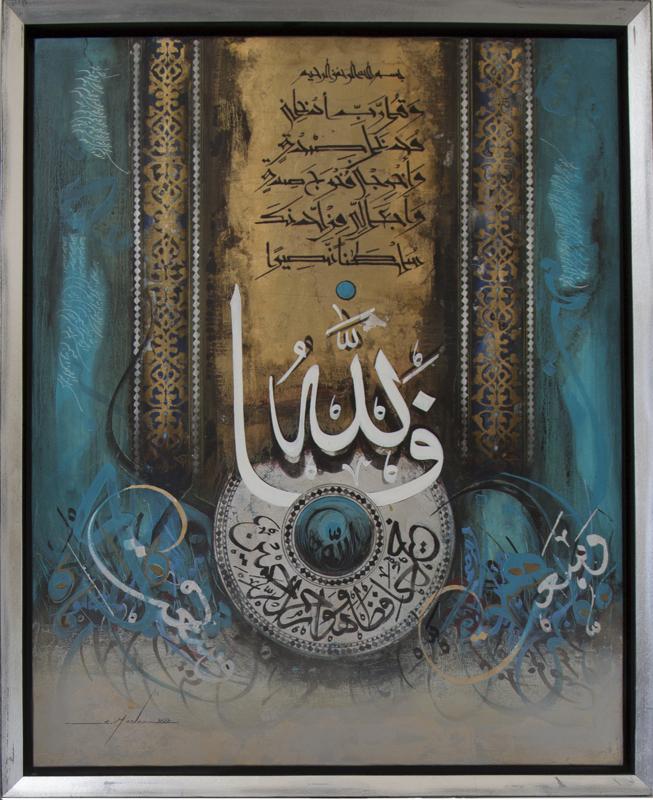 بسم الله الرحمن الرحيم
وقل رب أدخلني
مدخل صدق
وأخرجني مخرج صدق
واجعل لي من لدنك
سلطانا نصيرا
فالله
خير حافظا وهو أرحم الراحمين
الله